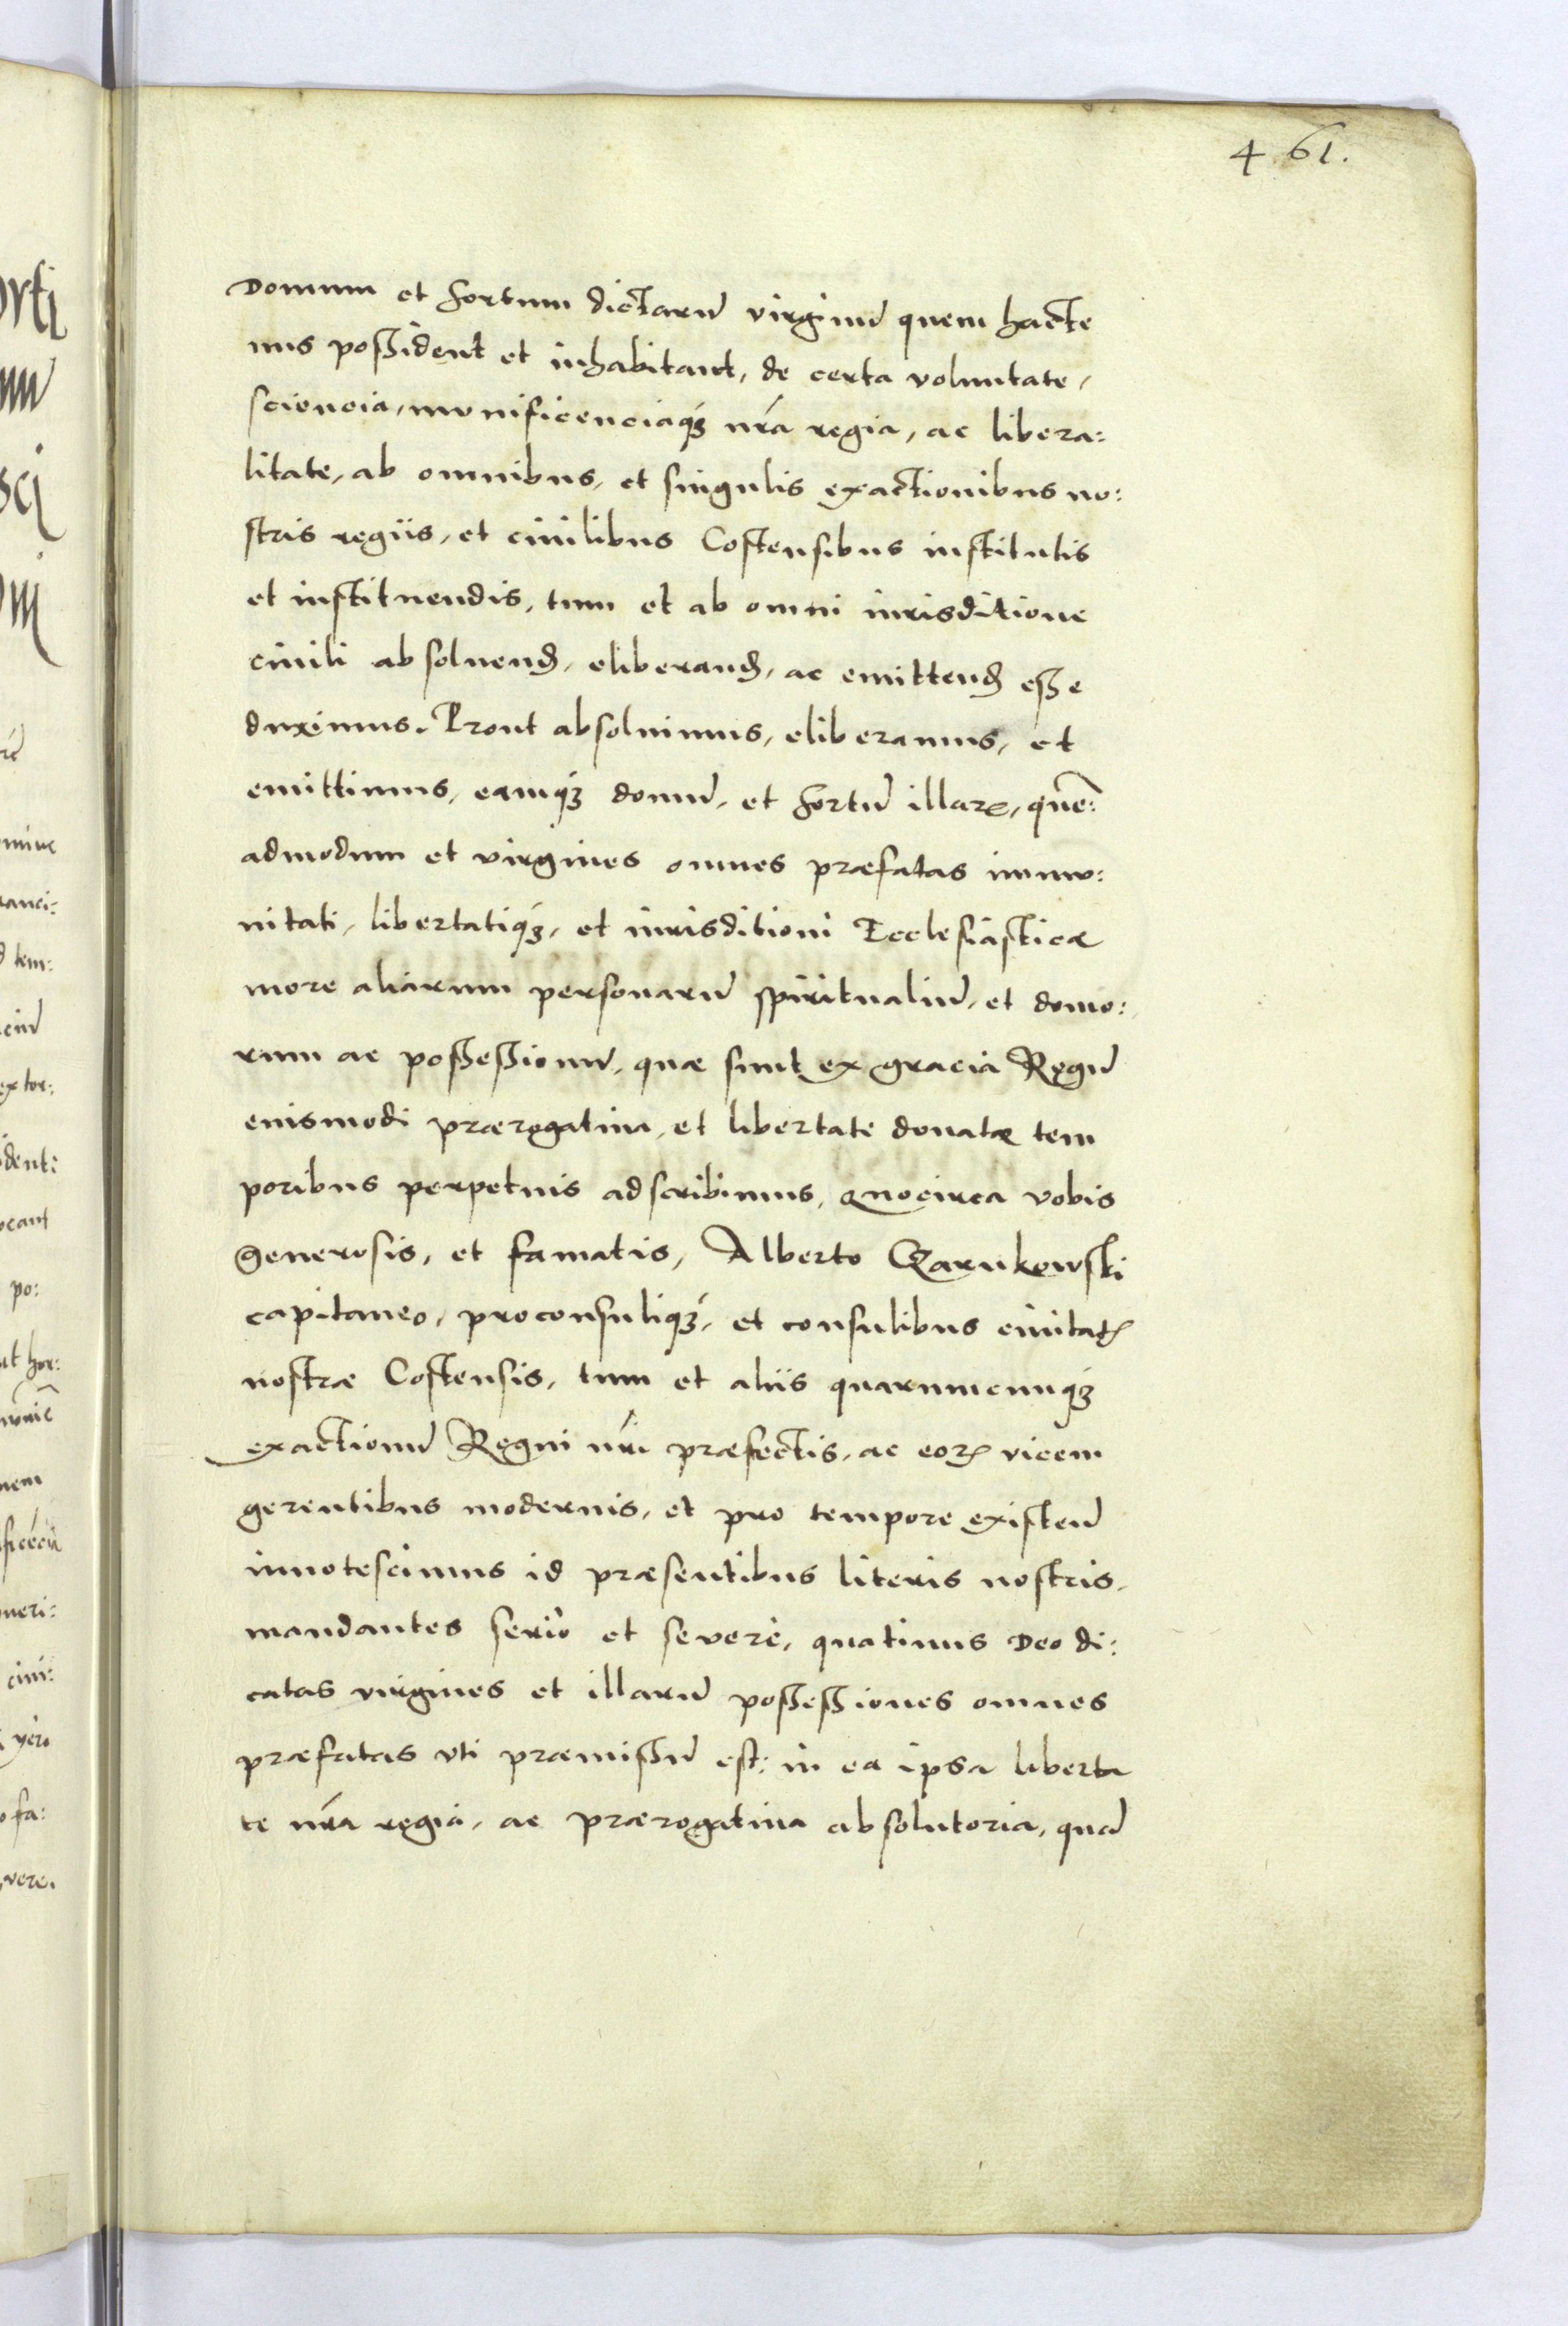 461.
Domum et hortum dictarũ virginũ quem hacte
nus possident et inhabitant, de certa voluntate,
sciencia, munificenciaq́ꝫ nr̃a regia, ac libera:
litate, ab omnibus, et singulis exactionibus no:
stris regiis, et ciuilibus Costensibus institutis
et instituendis, tum et ab omni iurisditione
ciuili absoluend̃, eliberand̃, ac emittend̃ esse
duximus. Prout absoluimus, eliberamus, et
emittimus, eamqꝫ domũ, et hortũ illarꝝ, quẽ:
admodum et virgines omnes præfatas immu:
nitati, libertatiq́ꝫ, et iurisditioni Ecclesiasticæ
more aliarum personarũ spiritualiũ, et domo:
rum ac possessionũ, quæ sunt ex gracia Regũ
euismodi prærogatiua, et libertate donatæ tem
poribus perpetuis adscribimus, quocirca vobis
Generosis, et famatis, Alberto Czarnkowski
capitaneo, proconsuliq́ꝫ, et consulibus ciuitatꝭ
nostræ Costensis, tum et aliis quarumcunqꝫ
exactionũ Regni nr̃i præfectis, ac eorꝝ vicem
gerentibus modernis, et pro tempore existeñ
innotescimus id præsentibus literis nostris,
mandantes seriò et severè, quatinus Deo di:
catas virgines et illarũ possessiones omnes
præfatas vti præmissũ est: in ea ipsa liberta
te nr̃a regia, ac prærogatiua absolutoria, quã